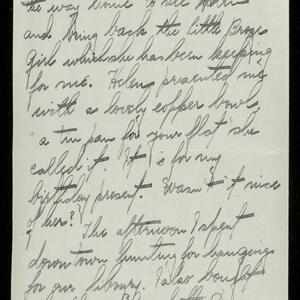 the way home to see Helen
and bring back the little Bronze
Girl which she has been keeping
for me. Helen presented me
with a lovely copper bowl,
"a tin pan for your flat" she
called it. It is for my
birthday present. Wasn't it nice
of her? The afternoon I spent
down town hunting for hangings
for our library. I also bought